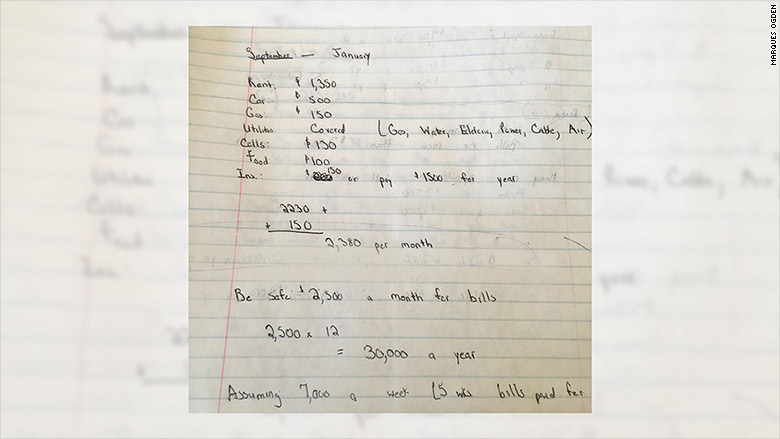 September — January
Rent: $ 1,350
Car: $ 500
Gas: $ 150
Utilities Covered (Gas, Water, Eldering, Power, Cable, Air)
Cells: $ 130
Food $100
Ins.: $ 150 or pay $1500 for year
2230 +
+ 150
2,380 per month
Be safe: $2,500 a month for bills
2,500 x 12
= 30,000 a year
Assuming 7,000 a week (5 wks bills paid for
MARQUES OGDEN